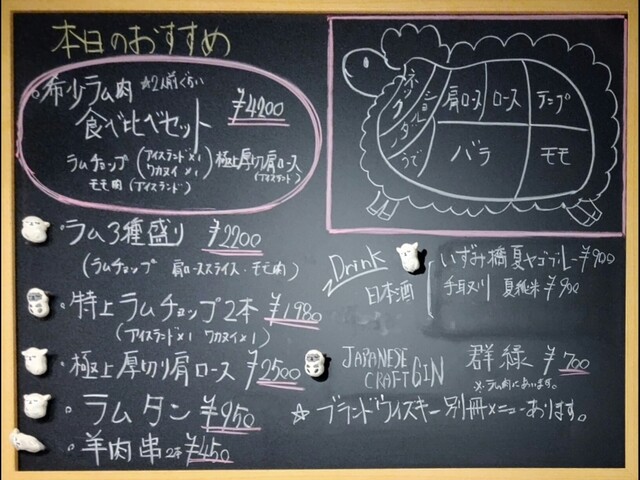 本日のおすすめ
・希少ラム肉 ☆2人前ぐらい
食べ比べセット ¥4200
ラムチョップ (アイスランド×1 ワカヌイ×1) 極上厚切肩ロース (アイスランド)
モモ肉 (アイスランド)
・ラム3種盛り ¥2200
(ラムチョップ 肩ローススライス・モモ肉)
・特上ラムチョップ2本 ¥1980
(アイスランド×1 ワカヌイ×1)
・極上厚切り肩ロース ¥2500
・ラムタン ¥950
・羊肉串 2本 ¥450
ネック
ショルダー
うで
肩ロース
ロース
ランプ
バラ
モモ
Drink
日本酒
いずみ橋 夏ヤゴブルー ¥900
夏純米 ¥900
JAPANESE
CRAFT GIN 群緑 ¥700
※ラム肉にあいます。
☆ブランドウイスキー別冊メニューあります。